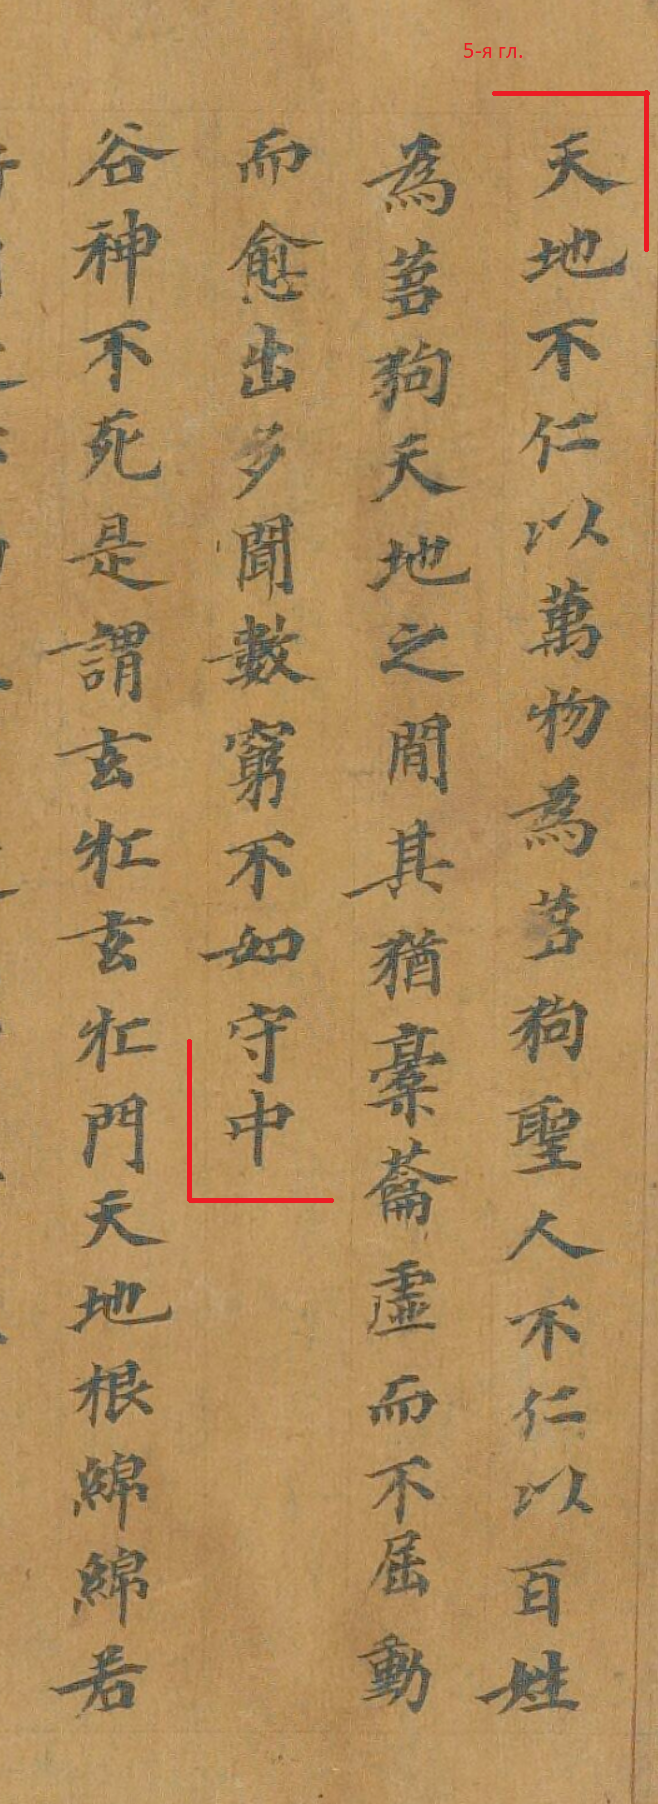 5-я гл.
天地不仁以萬物為芻狗聖人不仁以百姓
為芻狗天地之閒其猶橐籥虛而不屈動
而愈出多聞數窮不如守中
谷神不死是謂玄牝玄牝門天地根綿綿若